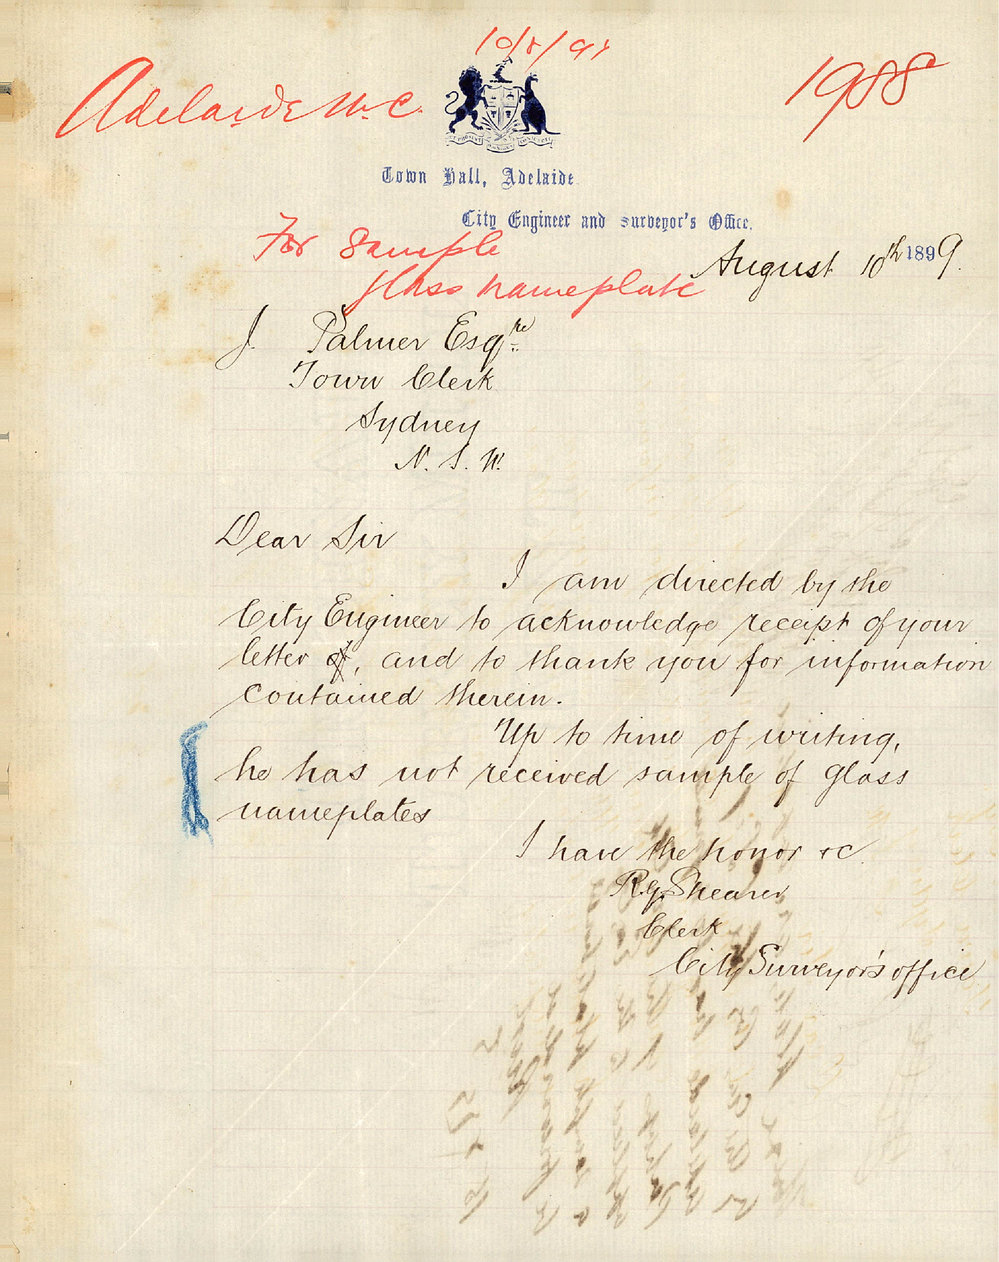 10/8/99
Adelaide M.C.
1988
Town Hall, Adelaide
City Engineer and Surveyor's Office.
For sample
glass nameplate
August 10th 1899.
J. Palmer Esqre
Town Clerk
Sydney
N. S. W.
Dear Sir
I am directed by the
City Engineer to acknowledge receipt of your
letter of, and to thank you for information
contained therein.
Up to time of writing,
he has not received sample of glass
nameplates
I have the honor &c.
R.G. Shearer
Clerk
City Surveyor's office